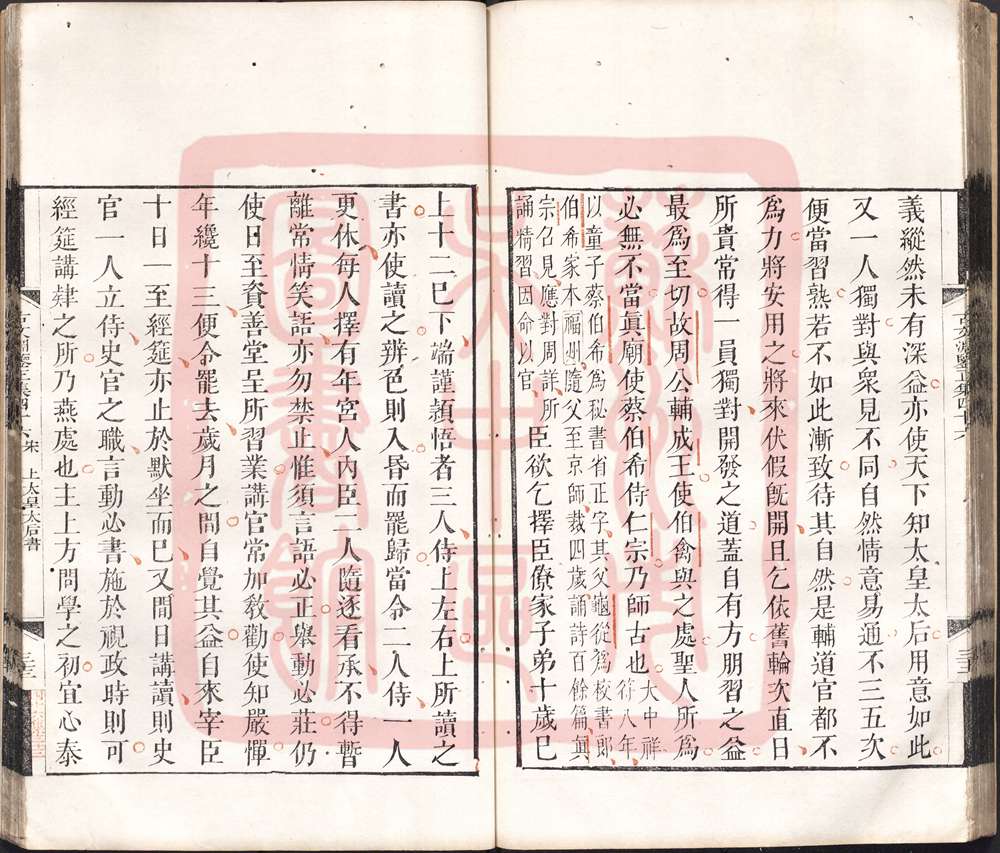 義縱然未有深益亦使天下知太皇太后用意如此
又一人獨對與衆見不同自然情意易通不三五次
便當習熟若不如此漸致待其自然是輔道官都不
爲力將安用之將來伏假旣開且乞依舊輪次直日
所貴常得一員獨對開發之道蓋自有方朋習之益
最爲至切故周公輔成王使伯禽與之處聖人所爲
必無不當眞廟使蔡伯希侍仁宗乃師古也大中祥符八年
以童子蔡伯希爲秘書省正字其父龜從爲校書郎
伯希家本福州隨父至京師裁四歲誦詩百餘篇眞
宗召見應對周詳所
誦精習因命以官
臣欲乞擇臣僚家子弟十歲已
上十二已下端謹頴悟者三人侍上左右上所讀之
書亦使讀之辨色則入昏而罷歸當令二人侍一人
更休每人擇有年宮人內臣二人隨逐看承不得暫
離常情笑語亦勿禁止惟須言語必正舉動必莊仍
使日至資善堂呈所習業講官常加敎勸使知嚴憚
年纔十三便令罷去歲月之間自覺其益自來宰臣
十日一至經筵亦止於默坐而已又間日講讀則史
官一人立侍史官之職言動必書施於視政時則可
經筵講肄之所乃燕處也主上方問學之初宜心泰
宋 上太皇太后書
三十三